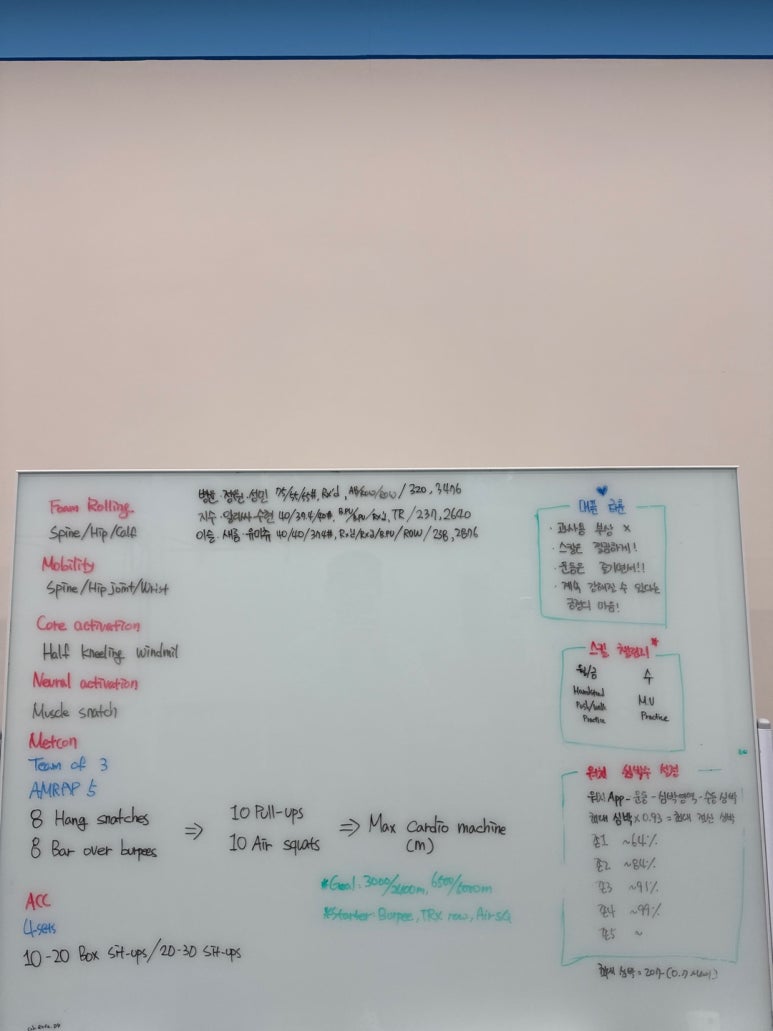 Foam Rolling
Spine/Hip/Calf
Mobility
Spine/Hip joint/Wrist
Core activation
Half kneeling windmil
Neural activation
Muscle snatch
Metcon
Team of 3
AMRAP 5
8 Hang snatches
8 Bar over burpees
⇒
10 Pull-ups
10 Air squats
⇒ Max Cardio machine
(m)
*Goal: 3000/2400m, 6500/5000m
*Starter: Burpee, TRX row, Air sq
ACC
4-sets
10-20 Box sit-ups/20-30 sit-ups
성민 75/65/65#, Rx'd, AB/Row/Row/320, 3476
지수· 수현 TR/237, 2640
이슬·새롬· 40/40/37#, /ROW/258, 2876
·과사용 부상 x
·스킬은 집중하게!
·운동은 즐기면서!!
·계속 강해질 수 있다는
긍정의 마음!
스킬 챌린지*
월/금
Handstand
Push/walk
Practice
수
M.U
Practice
워치 심박수 설정
워치 App - 운동 - 심박영역 - 수동 심박
최대 심박 x 0.93 = 최대 심박
존1 ~64%
존2 ~84%
존3 ~91%
존4 ~99%
존5 ~
심박 = 207-(0.7 x 나이)